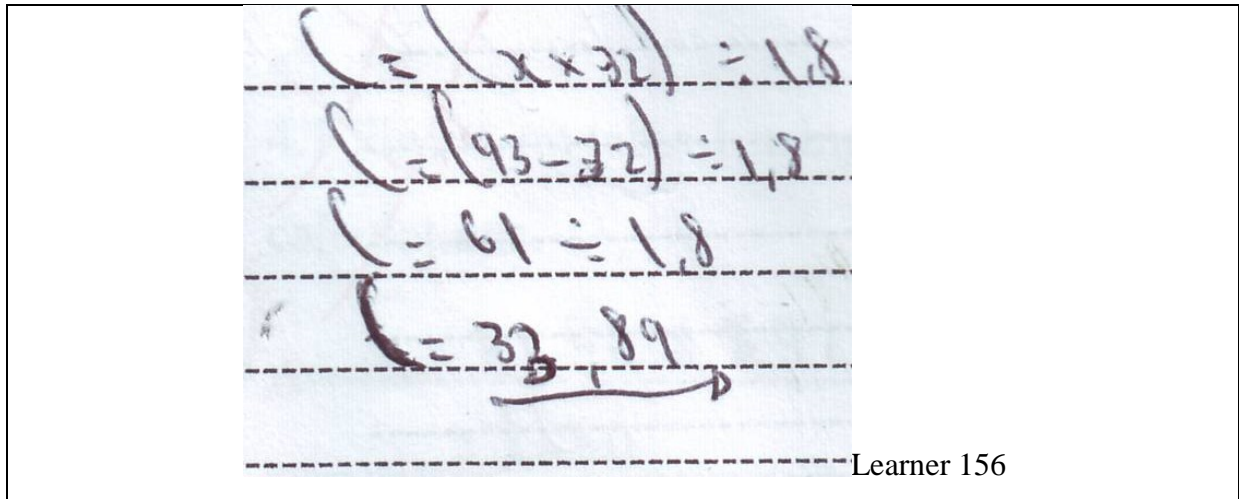 C = (x × 32) ÷ 1,8
C = (93 - 32) ÷ 1,8
C = 61 ÷ 1,8
C = 33,89
Learner 156